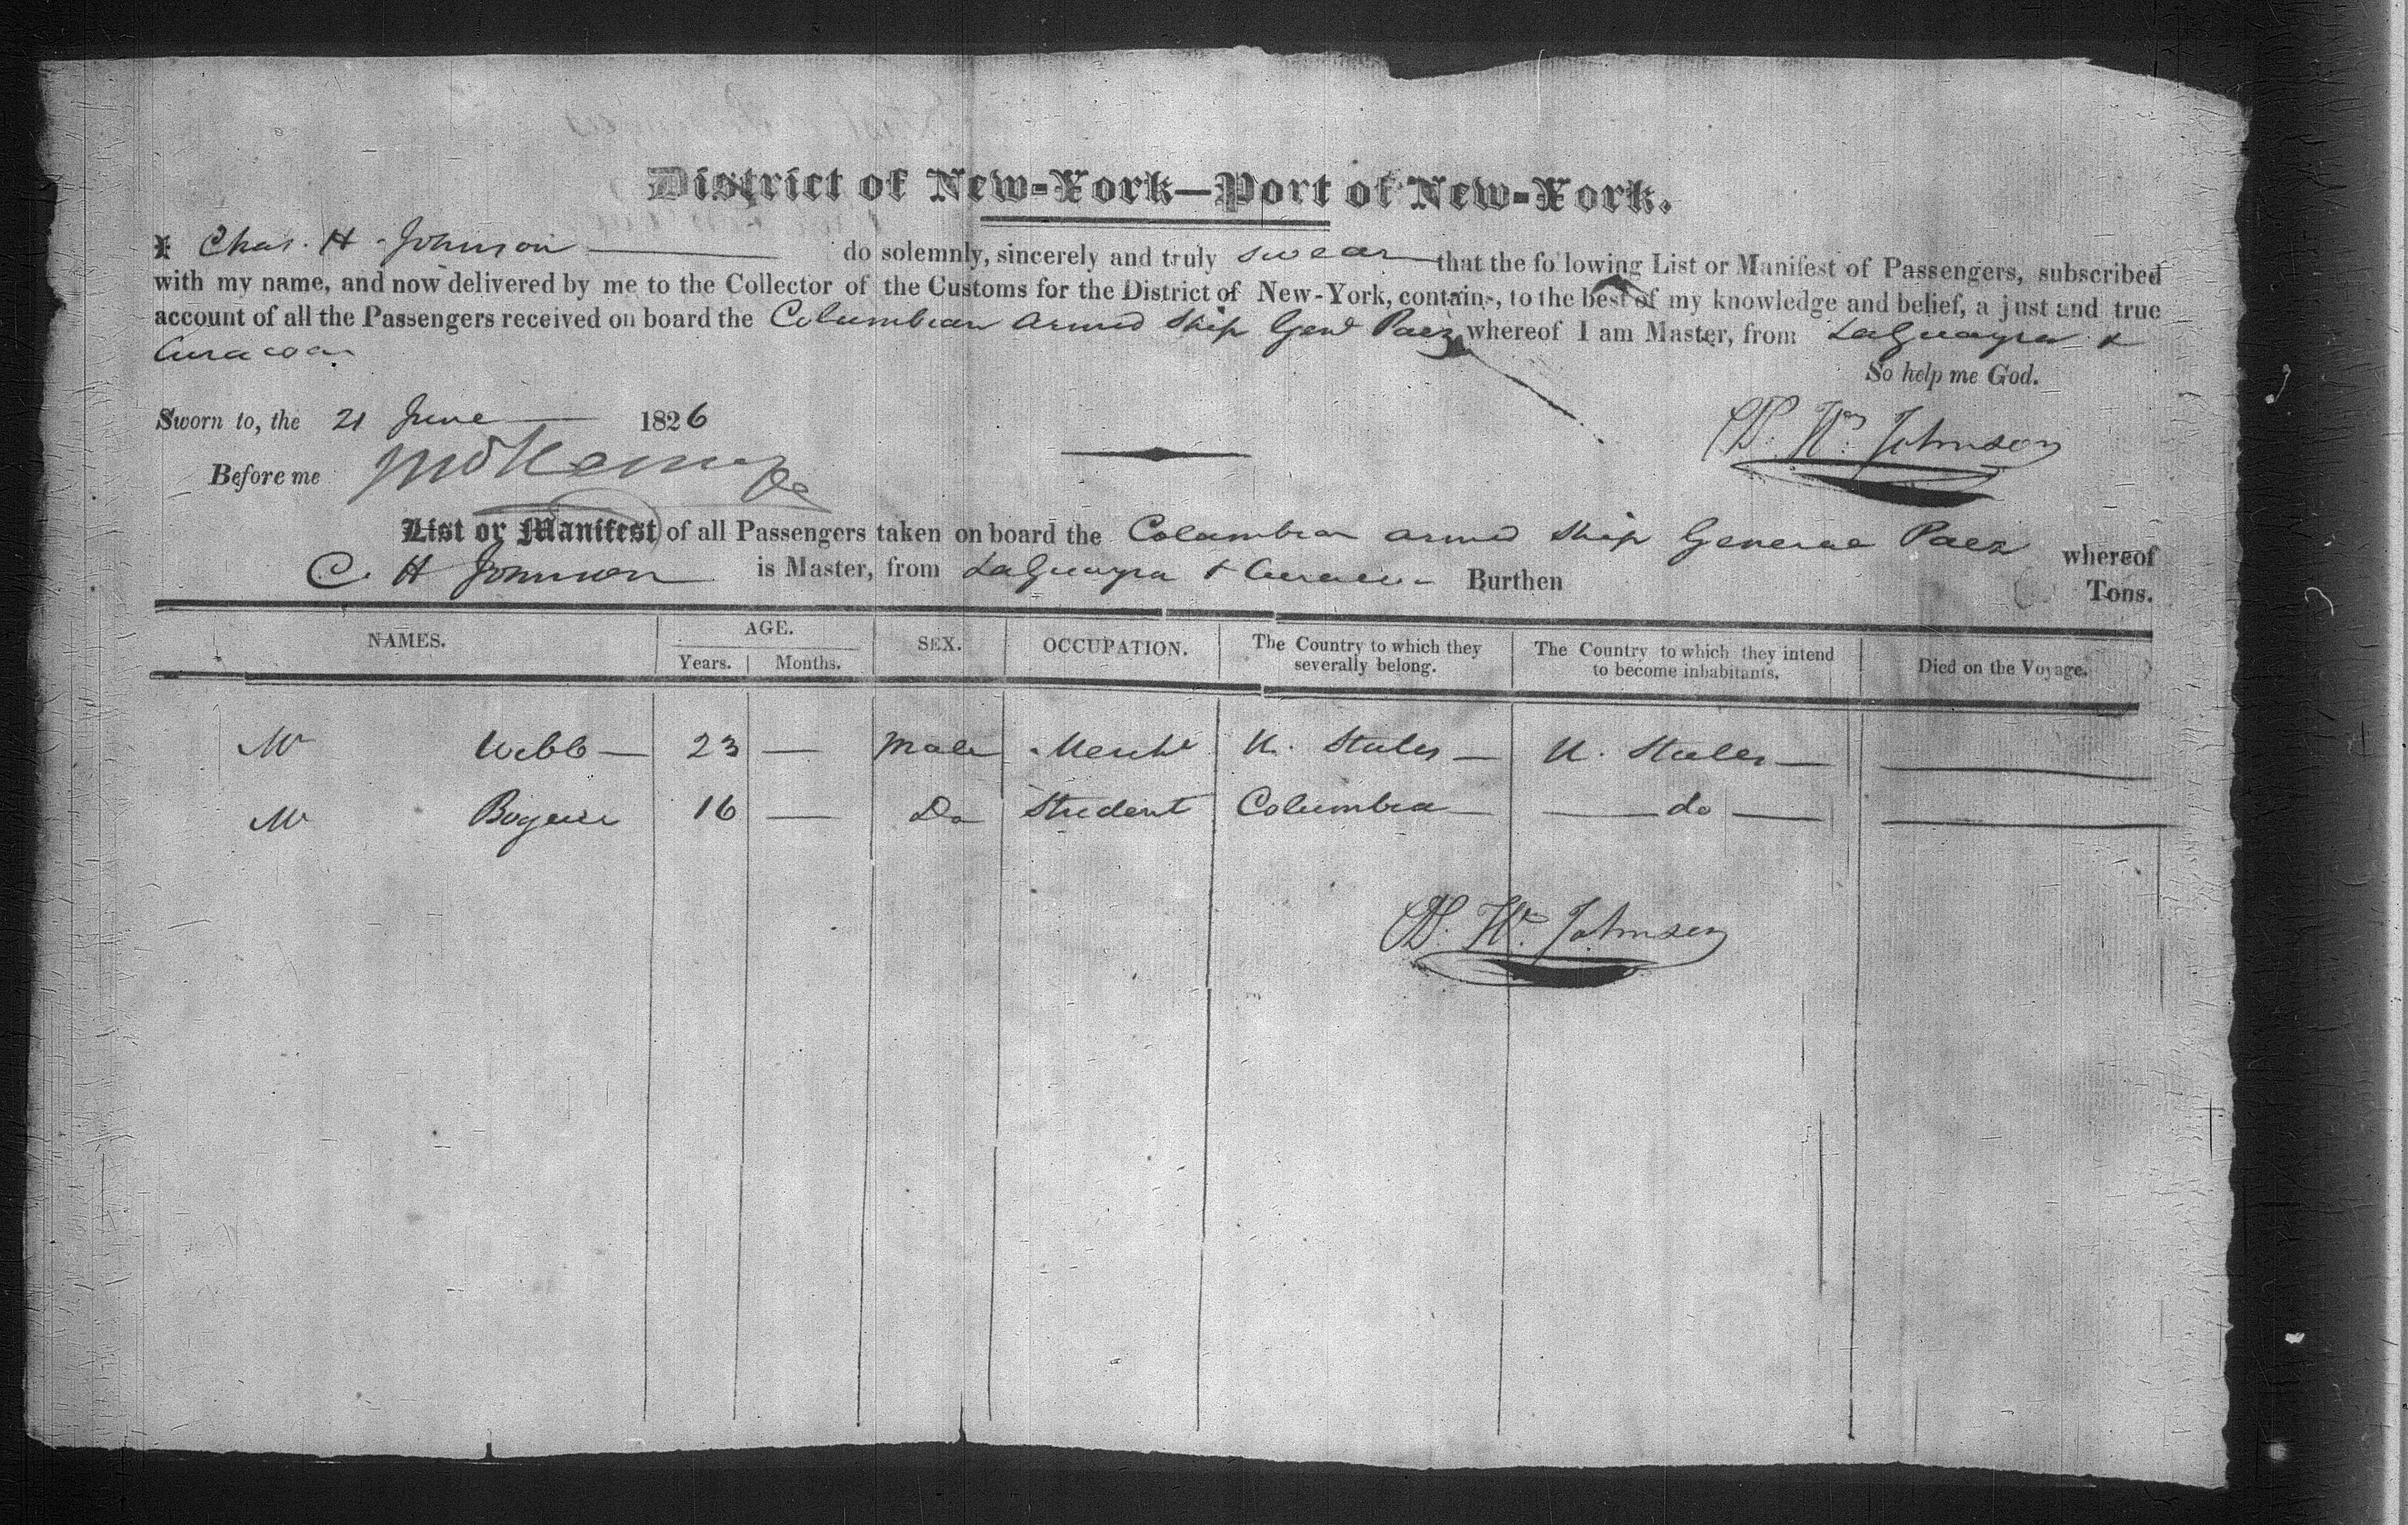 District of New-York—Port of New-York.
I Chas. H. Johnson do solemnly, sincerely and truly swear that the following List or Manifest of Passengers, subscribed
with my name, and now delivered by me to the Collector of the Customs for the District of New-York, contains, to the best of my knowledge and belief, a just and true
account of all the Passengers received on board the Columbian armed Ship Genl Paez whereof I am Master, from LaGuayra &
Curacoa
So help me God.
Sworn to, the 21 June 1826
Johnson
Before me
List or Manifest of all Passengers taken on board the Columbian armed Ship General Paez whereof
C. H Johnson is Master, from LaGuayra & Curacoa Burthen Tons.
NAMES. AGE. Years. Months. SEX. OCCUPATION. The Country to which they severally belong. The Country to which they intend to become inhabitants. Died on the Voyage.
Mr Webb — 23 — Male Mercht U. States — U. States —
Mr 16 — Do Student Columbia — — do —
Johnson